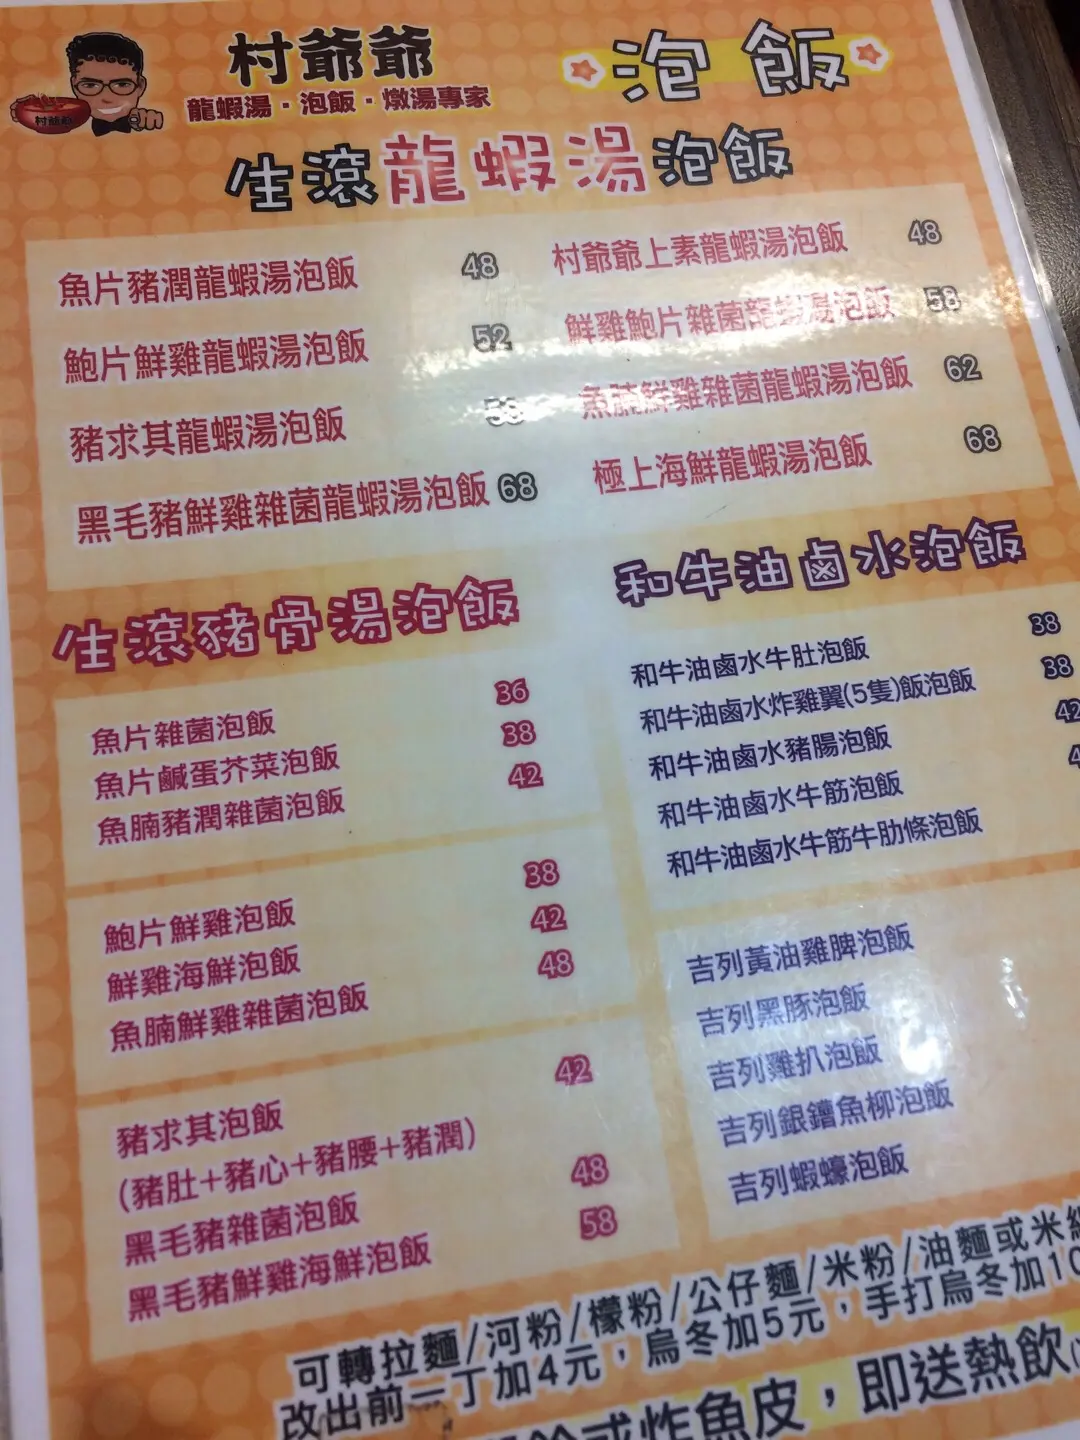 村爺爺
龍蝦湯·泡飯·燉湯專家
泡飯
生滾龍蝦湯泡飯
魚片豬潤龍蝦湯泡飯 48
鮑片鮮雞龍蝦湯泡飯 52
豬求其龍蝦湯泡飯 58
黑毛豬鮮雞雜菌龍蝦湯泡飯 68
村爺爺上素龍蝦湯泡飯 48
鮮雞鮑片雜菌龍蝦湯泡飯 58
魚腩鮮雞雜菌龍蝦湯泡飯 62
極上海鮮龍蝦湯泡飯 68
生滾豬骨湯泡飯
魚片雜菌泡飯 36
魚片鹹蛋芥菜泡飯 38
魚腩豬潤雜菌泡飯 42
鮑片鮮雞泡飯 38
鮮雞海鮮泡飯 42
魚腩鮮雞雜菌泡飯 48
豬求其泡飯 42
(豬肚+豬心+豬腰+豬潤)
黑毛豬雜菌泡飯 48
黑毛豬鮮雞海鮮泡飯 58
和牛油鹵水泡飯
和牛油鹵水牛肚泡飯 38
和牛油鹵水炸雞翼(5隻)飯泡飯 38
和牛油鹵水豬腸泡飯 42
和牛油鹵水牛筋泡飯 4
和牛油鹵水牛筋牛肋條泡飯
吉列黃油雞脾泡飯
吉列黑豚泡飯
吉列雞扒泡飯
吉列銀鱈魚柳泡飯
吉列蝦蠔泡飯
可轉拉麵/河粉/檬粉/公仔麵/米粉/油麵或米線
改出前一丁加4元，烏冬加5元，手打烏冬加10
或炸魚皮，即送熱飲
村爺爺